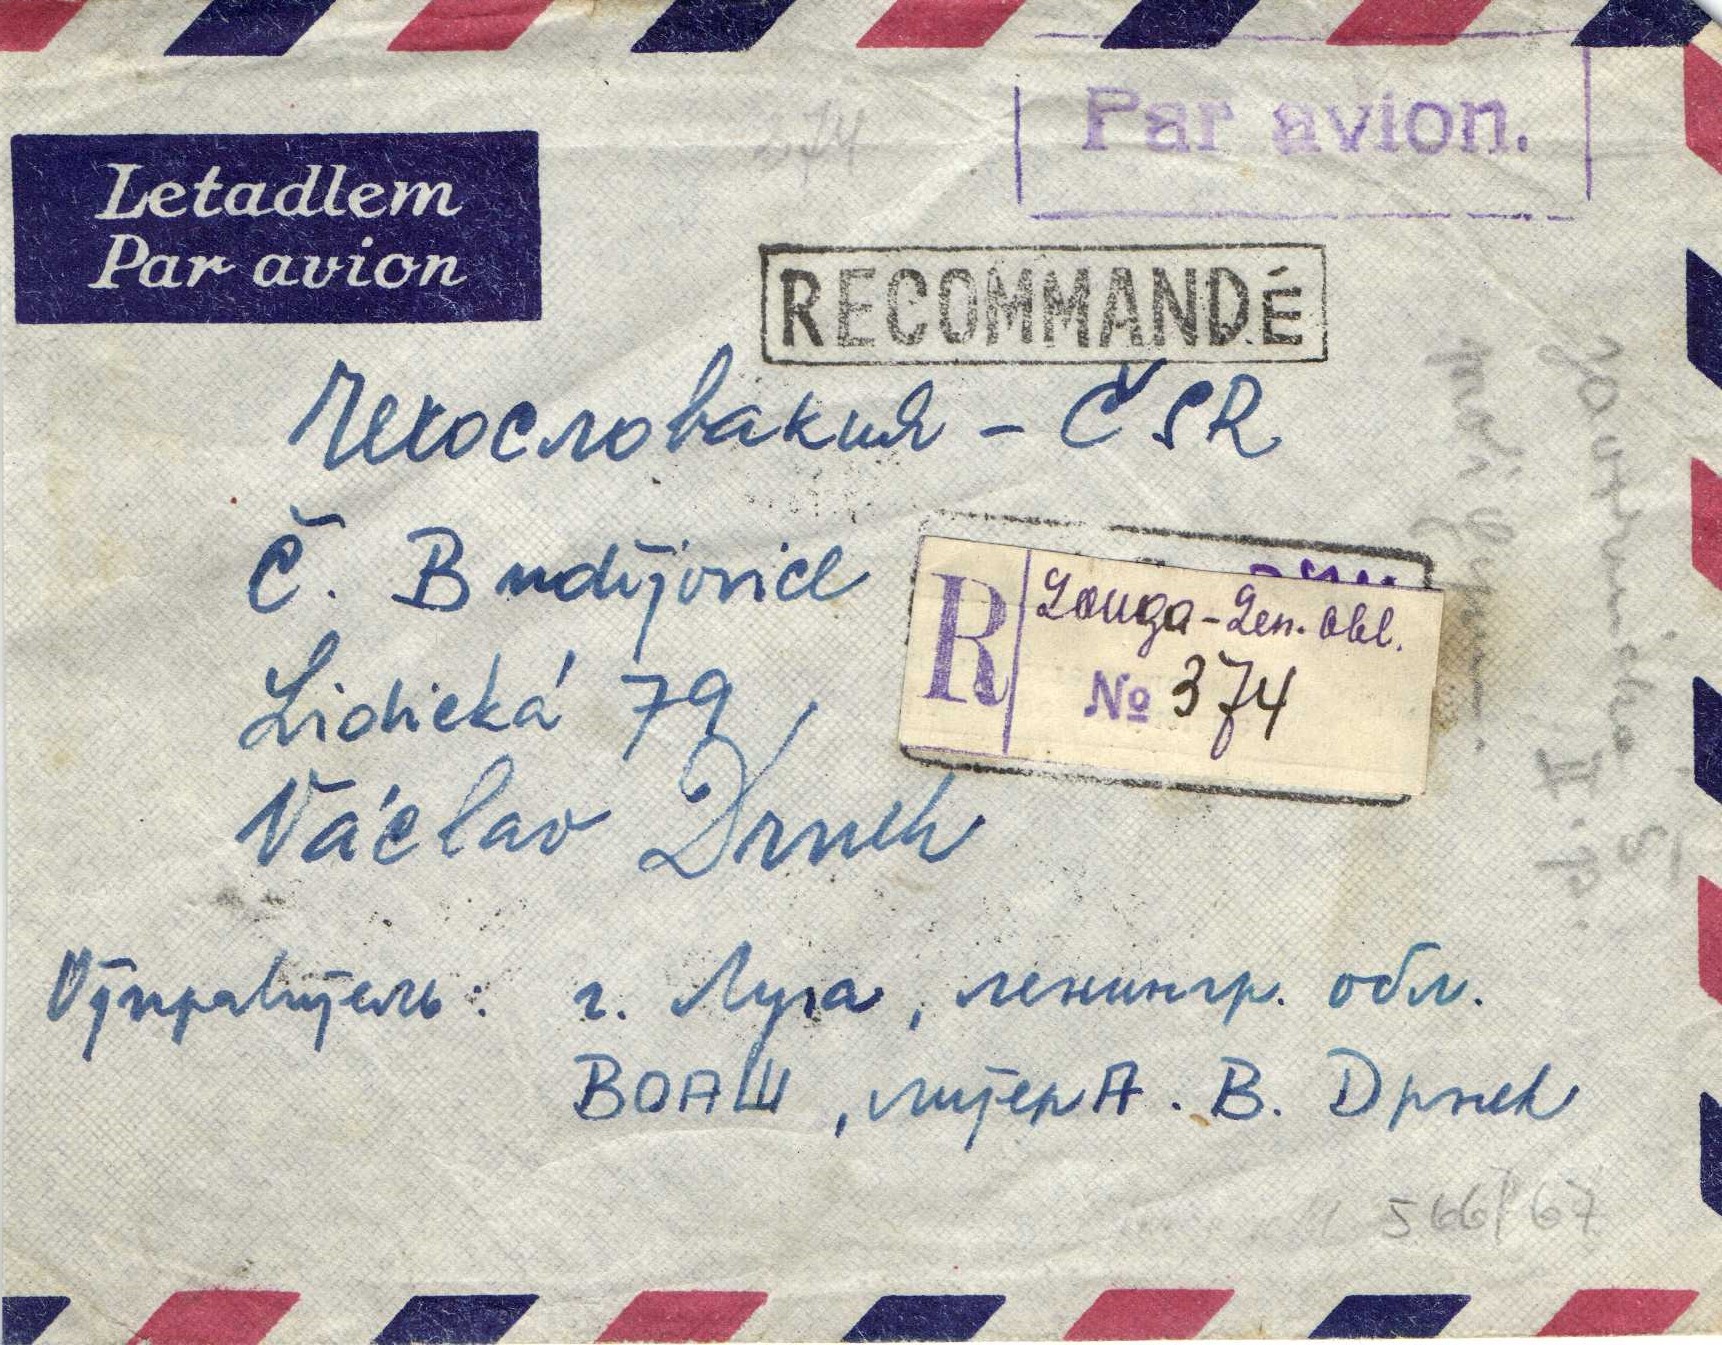 Letadlem
Par avion
Par avion.
374
RECOMMANDÉ
Чехословакия - ČSR
Č. Budějovice
Lidická 79
Václav Drnek
R
Louga-Len. obl.
№ 374
Отправитель: г. Луга, ленингр. обл.
ВОАШ, литер А. В. Дрнек
566/67